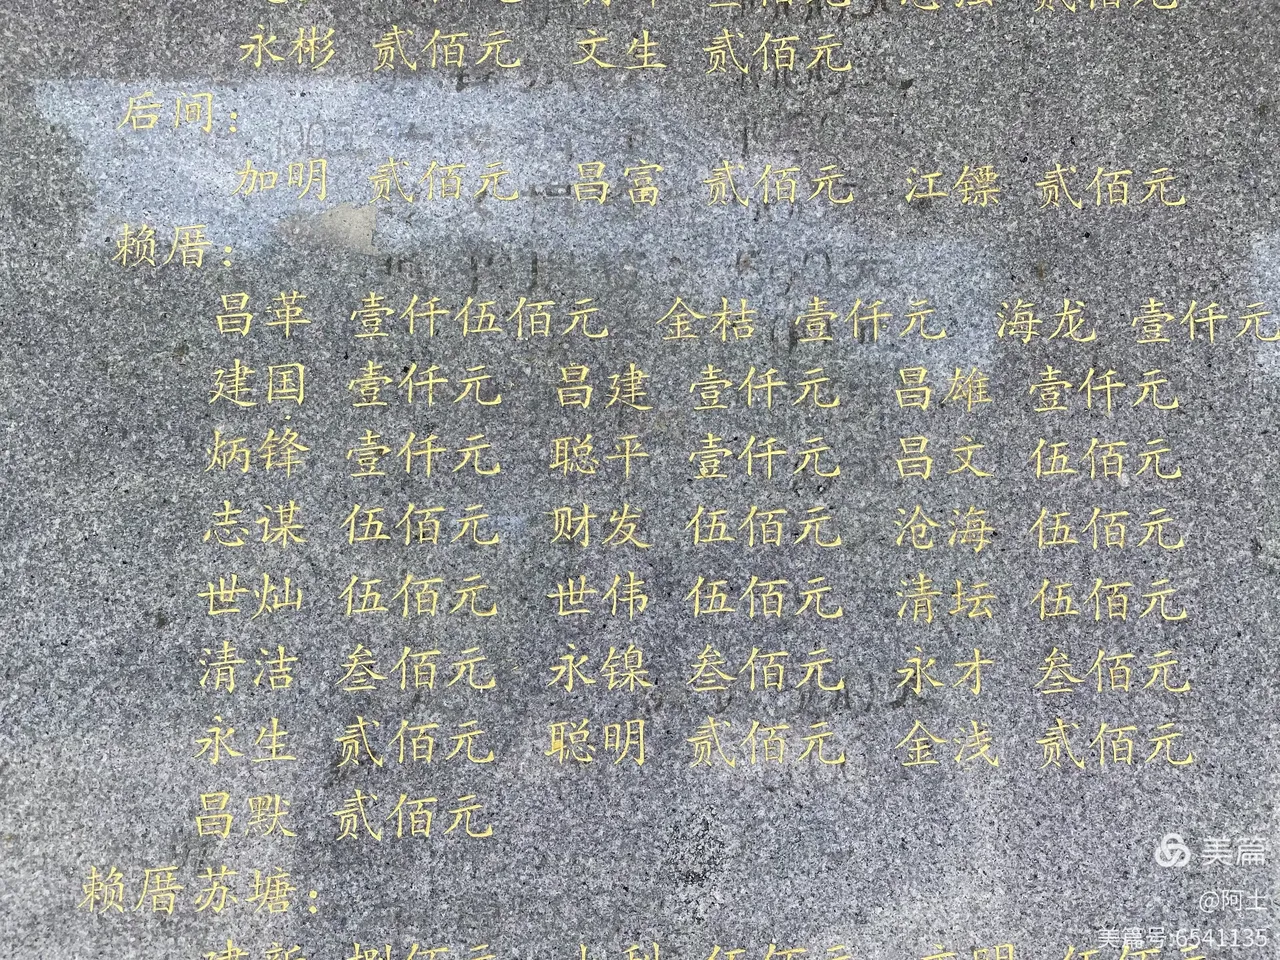 永彬 贰佰元 文生 贰佰元
后间：
加明 贰佰元 昌富 贰佰元 江镖 贰佰元
赖厝：
昌革 壹仟伍佰元 金桔 壹仟元 海龙 壹仟元
建国 壹仟元 昌建 壹仟元 昌雄 壹仟元
炳锋 壹仟元 聪平 壹仟元 昌文 伍佰元
志谋 伍佰元 财发 伍佰元 沧海 伍佰元
世灿 伍佰元 世伟 伍佰元 清坛 伍佰元
清洁 叁佰元 永镍 叁佰元 永才 叁佰元
永生 贰佰元 聪明 贰佰元 金浅 贰佰元
昌默 贰佰元
赖厝苏塘：
美篇
@阿土
美篇号:6541135